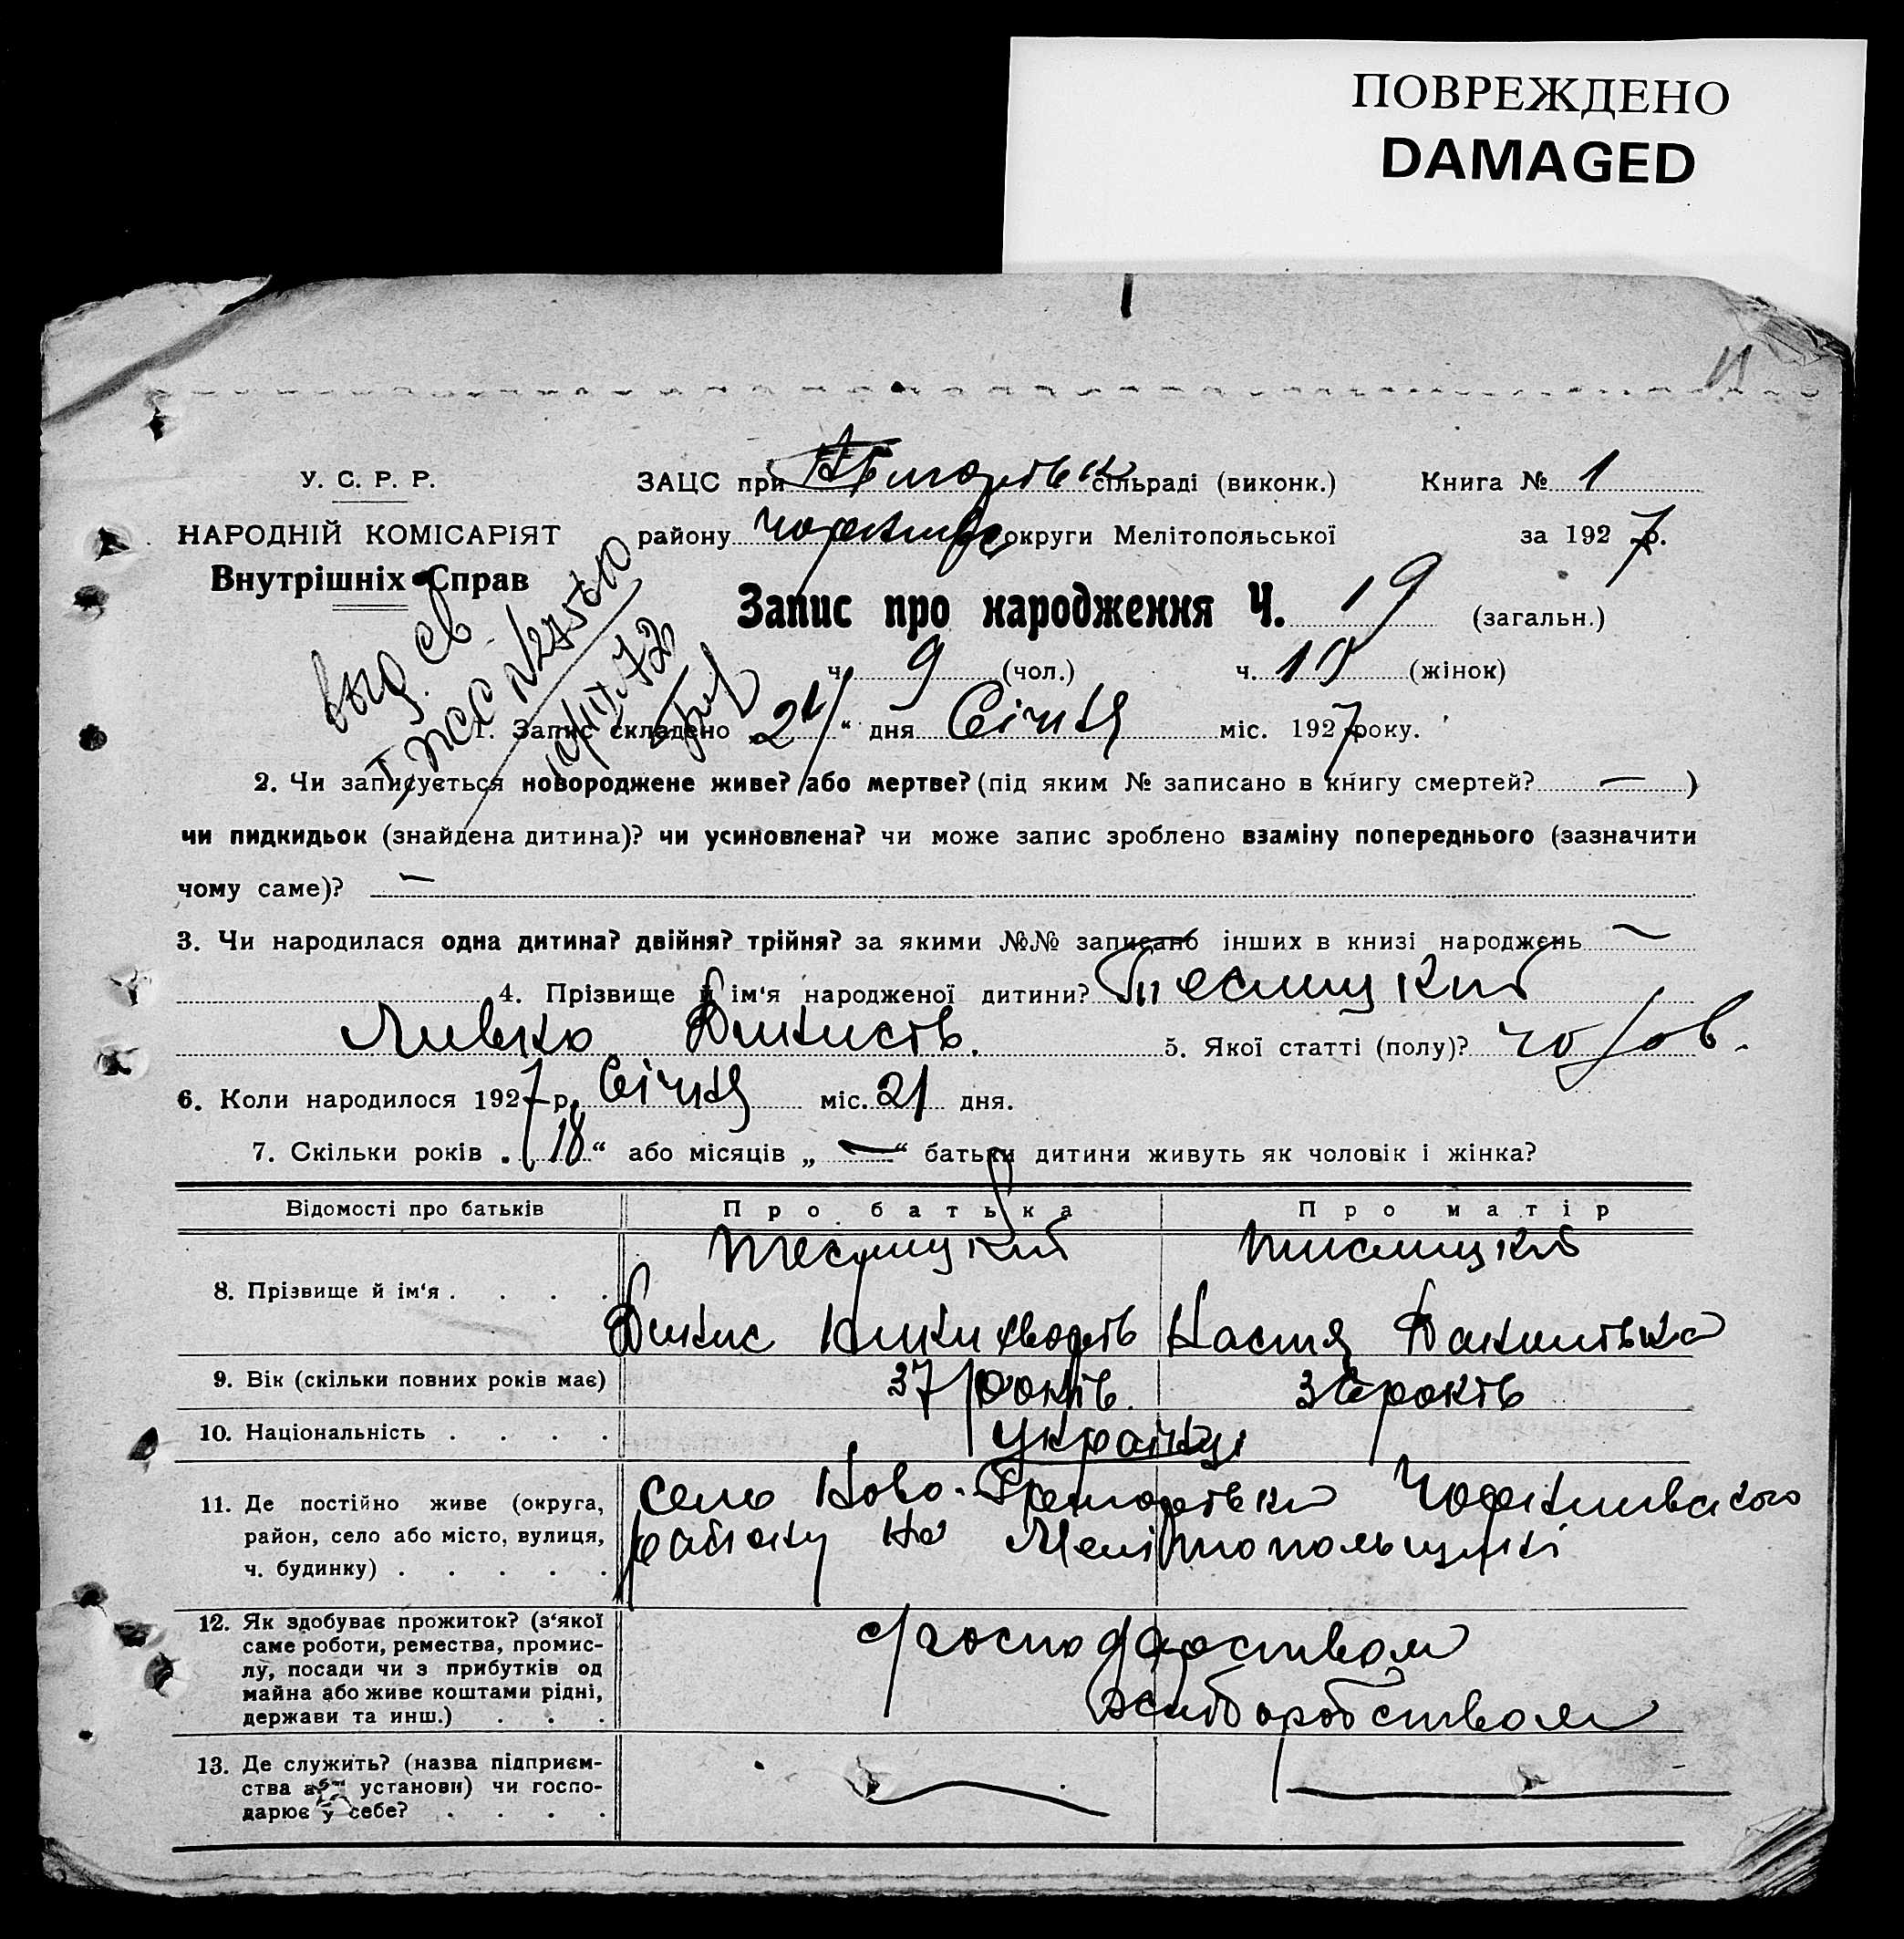 ПОВРЕЖДЕНО
DAMAGED
11
У. С. Р. Р.
НАРОДНІЙ КОМІСАРІЯТ
Внутрішніх Справ
ЗАЦС при сільраді (виконк.) Книга № 1
району округи Мелітопольської за 1927 р.
Запис про народження Ч. 19 (загальн.)
ч. 9 (чол.) ч. 10 (жінок)
выд. св.
1. Запис складено „21“ дня Січня міс. 1927 року.
2. Чи записується новороджене живе? або мертве? (під яким № записано в книгу смертей? — )
чи пидкидьок (знайдена дитина)? чи усиновлена? чи може запис зроблено взаміну попереднього (зазначити
чому саме)? —
3. Чи народилася одна дитина? двійня? трійня? за якими №№ записано інших в книзі народжень —
4. Прізвище й ім'я народженої дитини? Песлицкий
5. Якої статті (полу)? чолов.
6. Коли народилося 1927 р. Січня міс. 21 дня.
7. Скільки років „18“ або місяців „—“ батьки дитини живуть як чоловік і жінка?
Відомості про батьків Про батька Про матір
8. Прізвище й ім'я . . . .
Настя
9. Вік (скільки повних років має) 37 років. 36 років
10. Національність . . . . Українці
11. Де постійно живе (округа,
район, село або місто, вулиця,
ч. будинку) . . . . .
село Ново-Григорівка Чоплинвского
району на Мелітопольщині
12. Як здобуває прожиток? (з'якої
саме роботи, ремества, промис-
лу, посади чи з прибутків од
майна або живе коштами рідні,
держави та инш.) . . .
господарством
хліборобством
13. Де служить? (назва підприєм-
ства або установи) чи госпо-
дарює у себе? . . . .